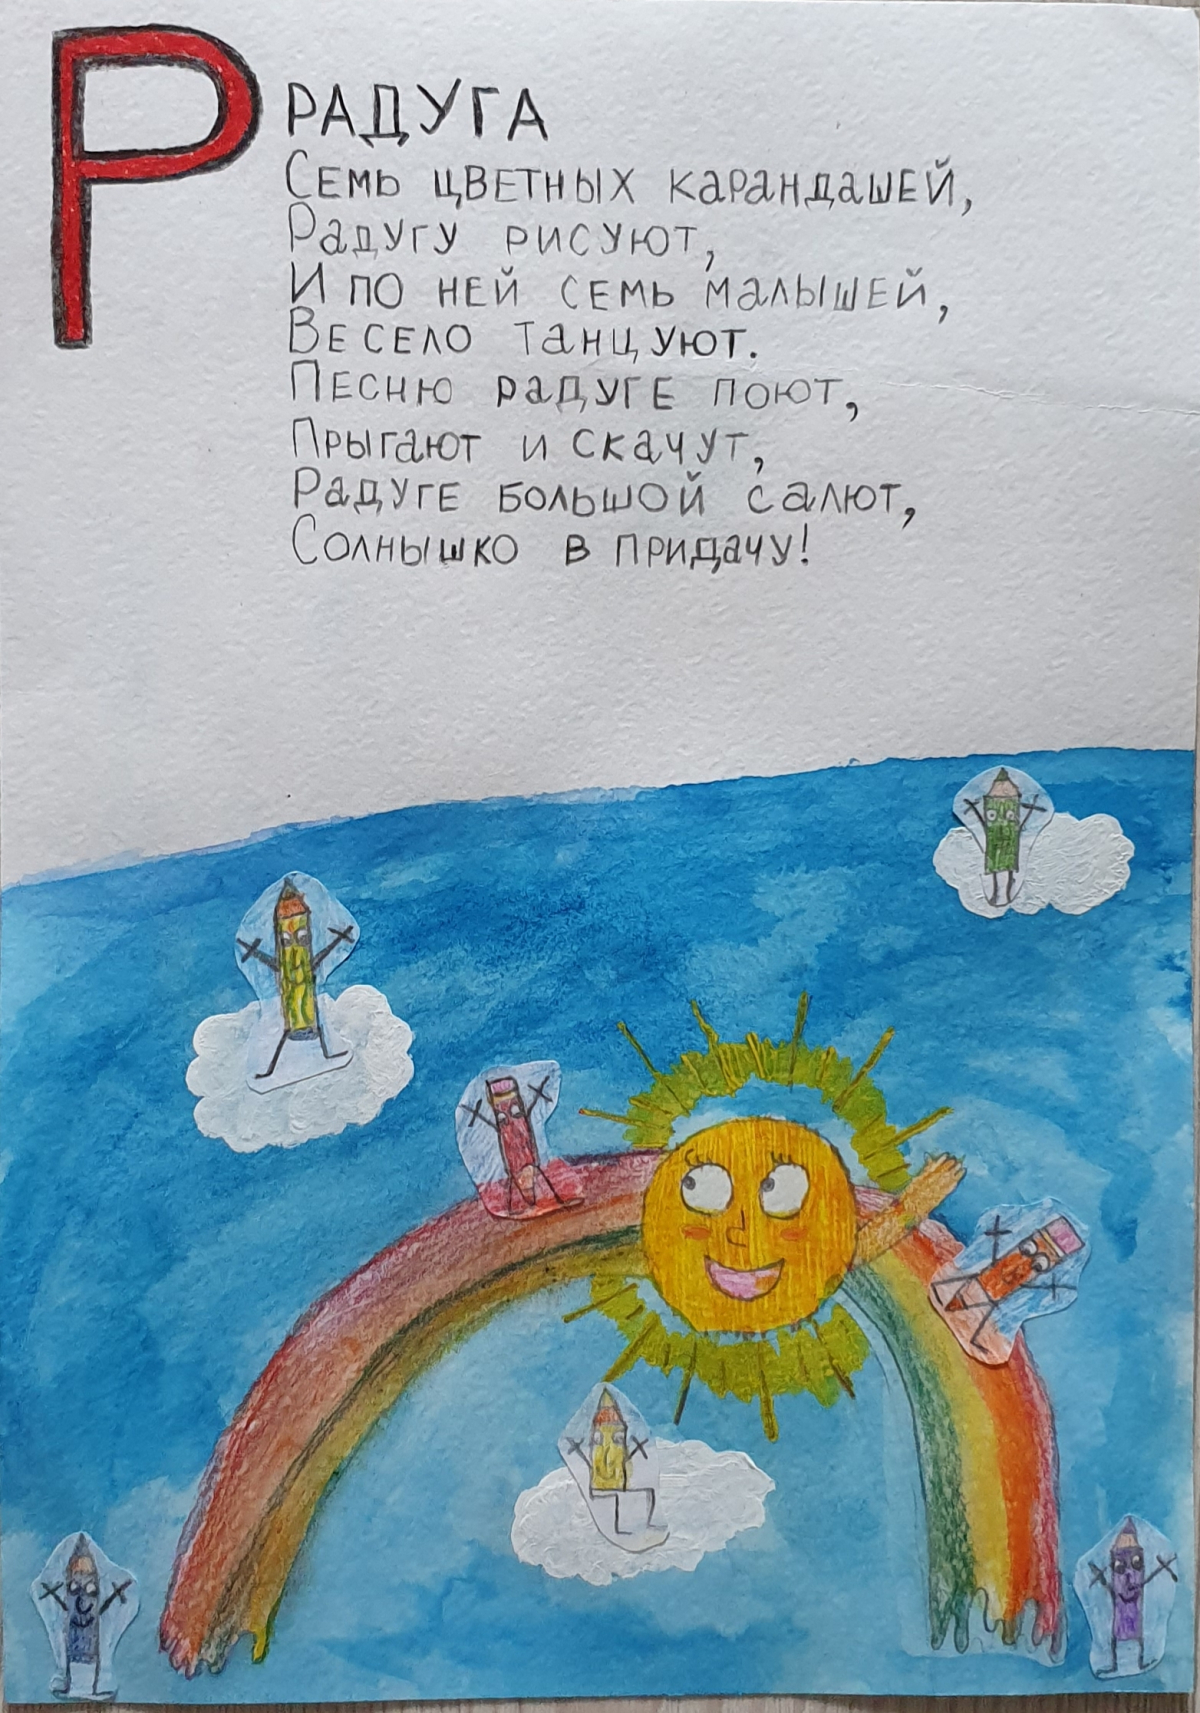 Р
РАДУГА
Семь цветных карандашей,
Радугу рисуют,
И по ней семь малышей,
Весело танцуют.
Песню радуге поют,
Прыгают и скачут,
Радуге большой салют,
Солнышко в придачу!